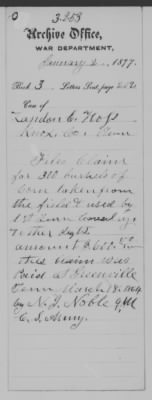 3258
Archive Office,
WAR DEPARTMENT,
January 2, 1877.
Book 3. Letters Sent, page
Case of
Landon C.
Knox Co. Tenn
Files Claim
for 300 bushels of
Corn taken from
the field & used by
1st Tenn
& other Regts.
amount $600.00
This claim was
Paid at Greenville
Tenn March 18, 1864
by N. J. Noble QM
C. S. Army.